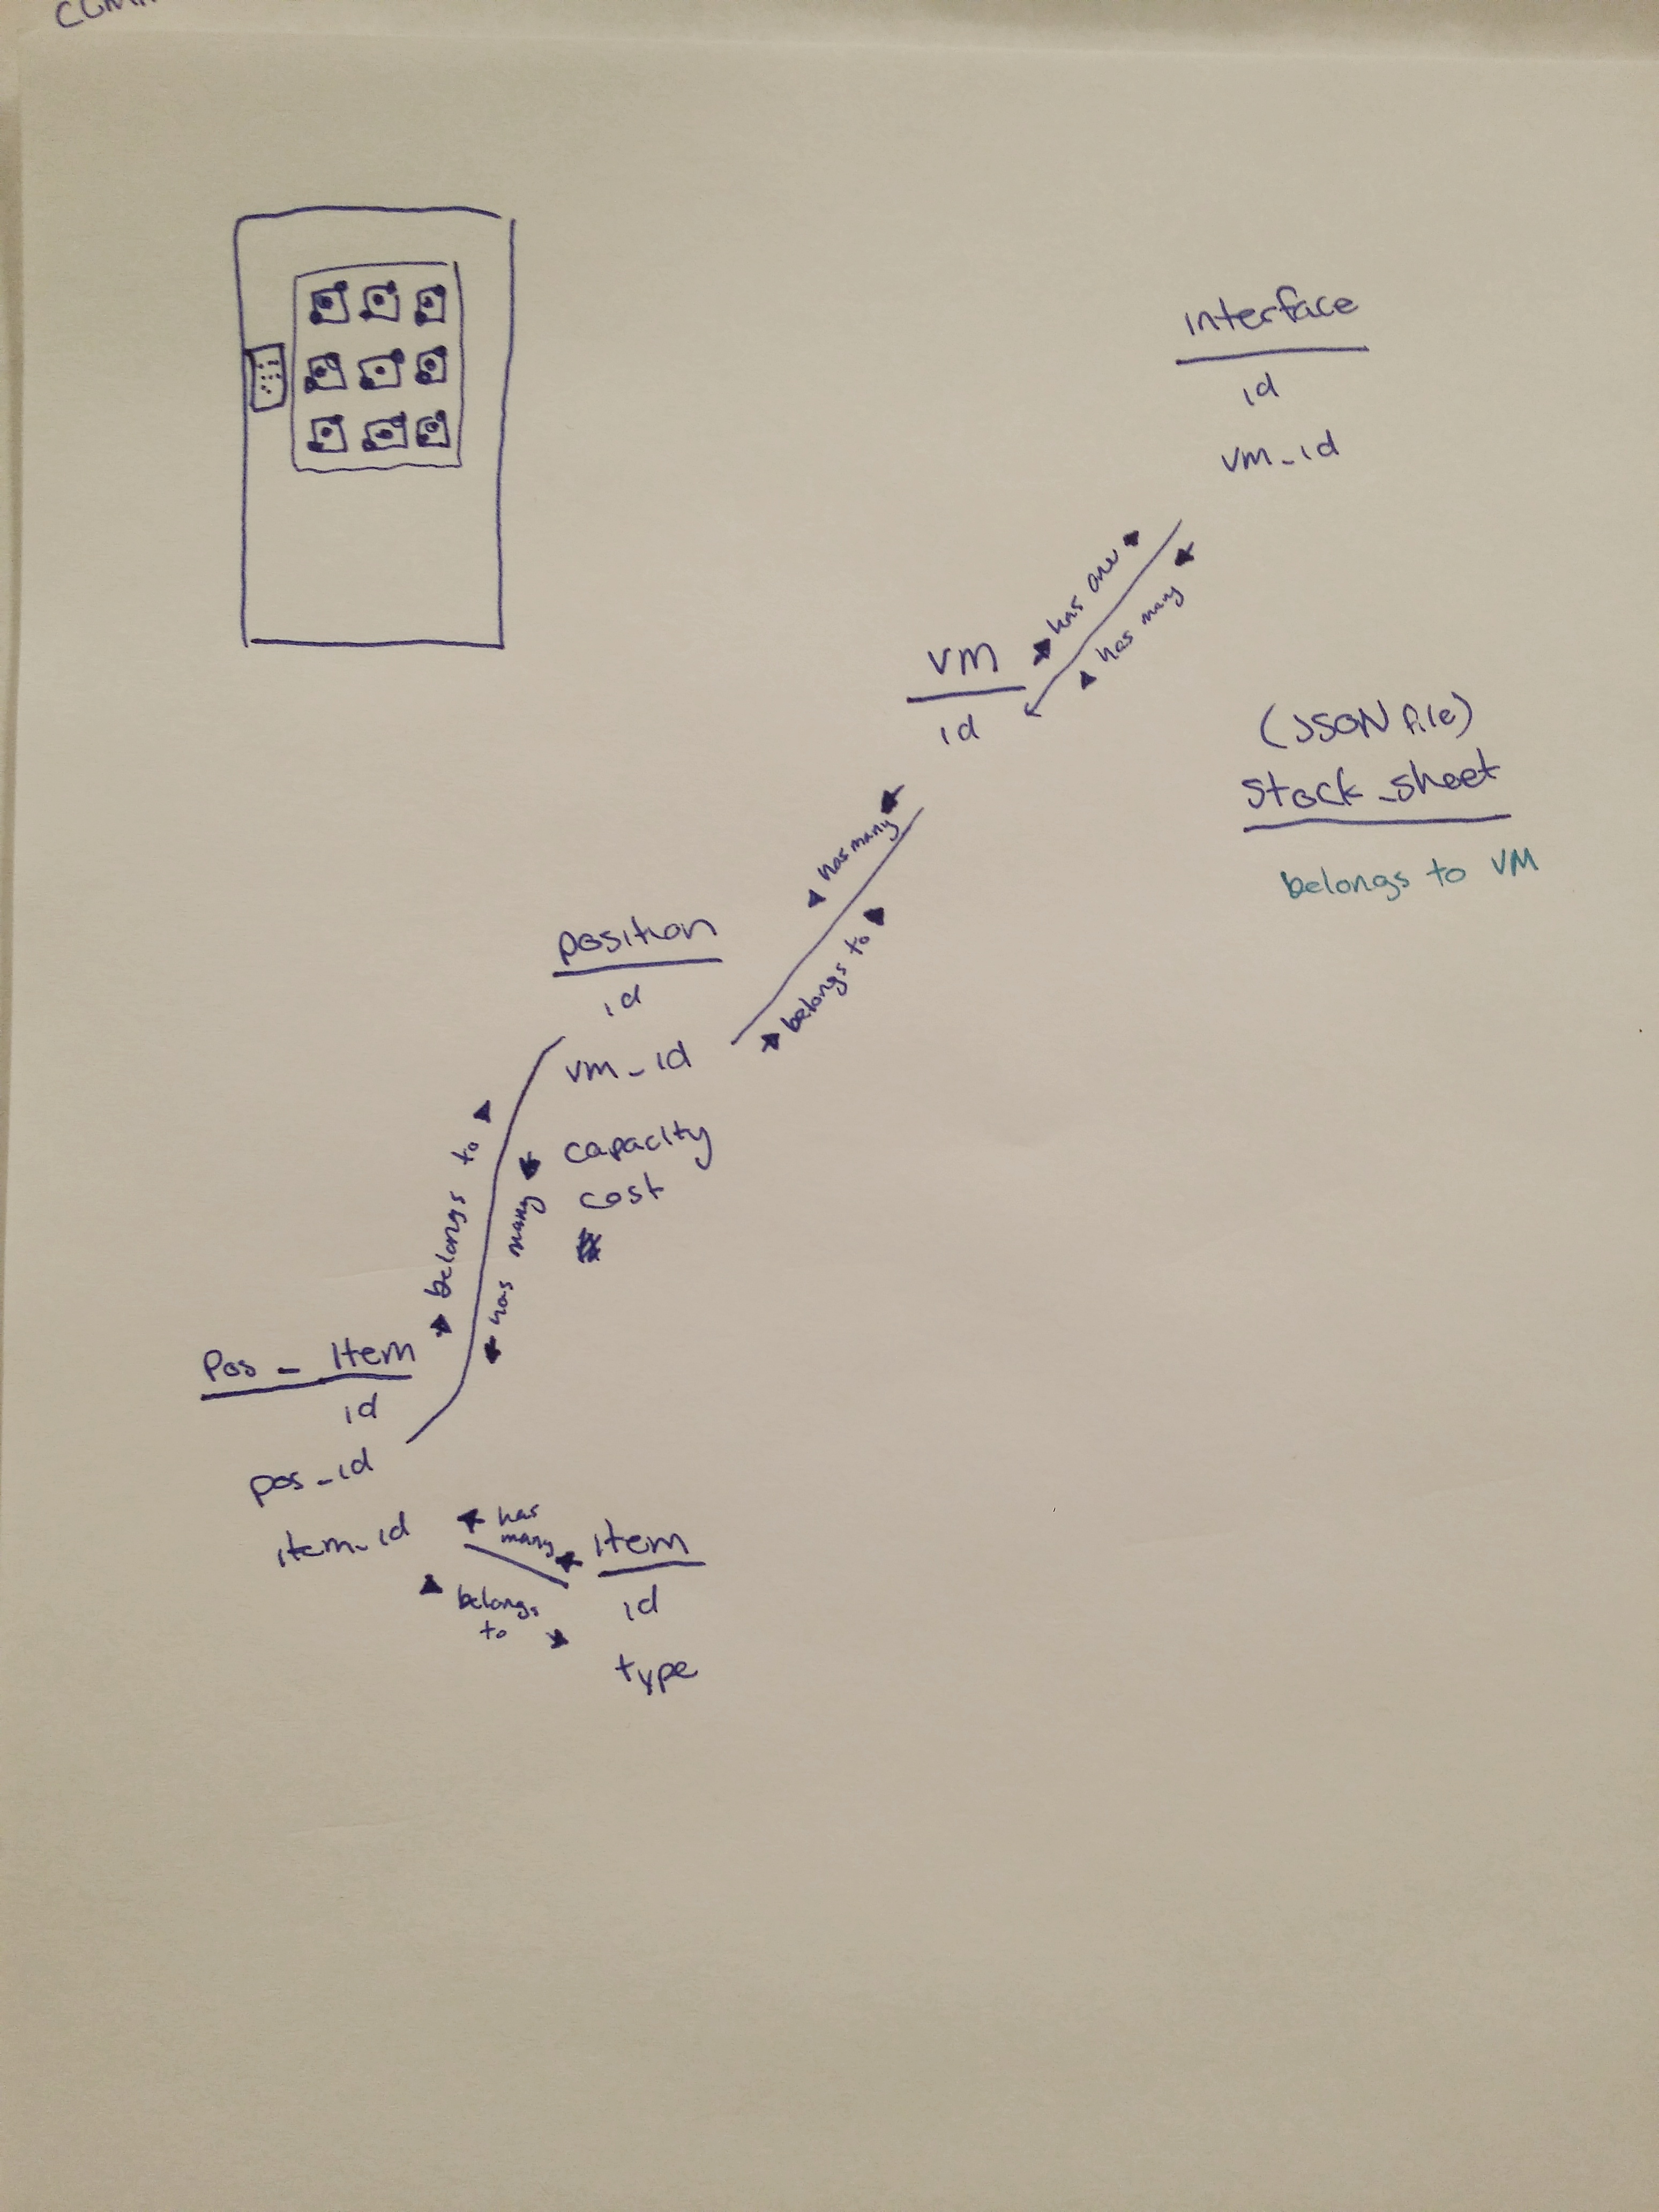 interface
id
vm_id
has one
has many
vm
id
(JSON file)
stock_sheet
belongs to VM
has many
belongs to
position
id
vm_id
capacity
cost
belongs to
has many
Pos_Item
id
pos_id
item_id
has
many
belongs
to
item
id
type